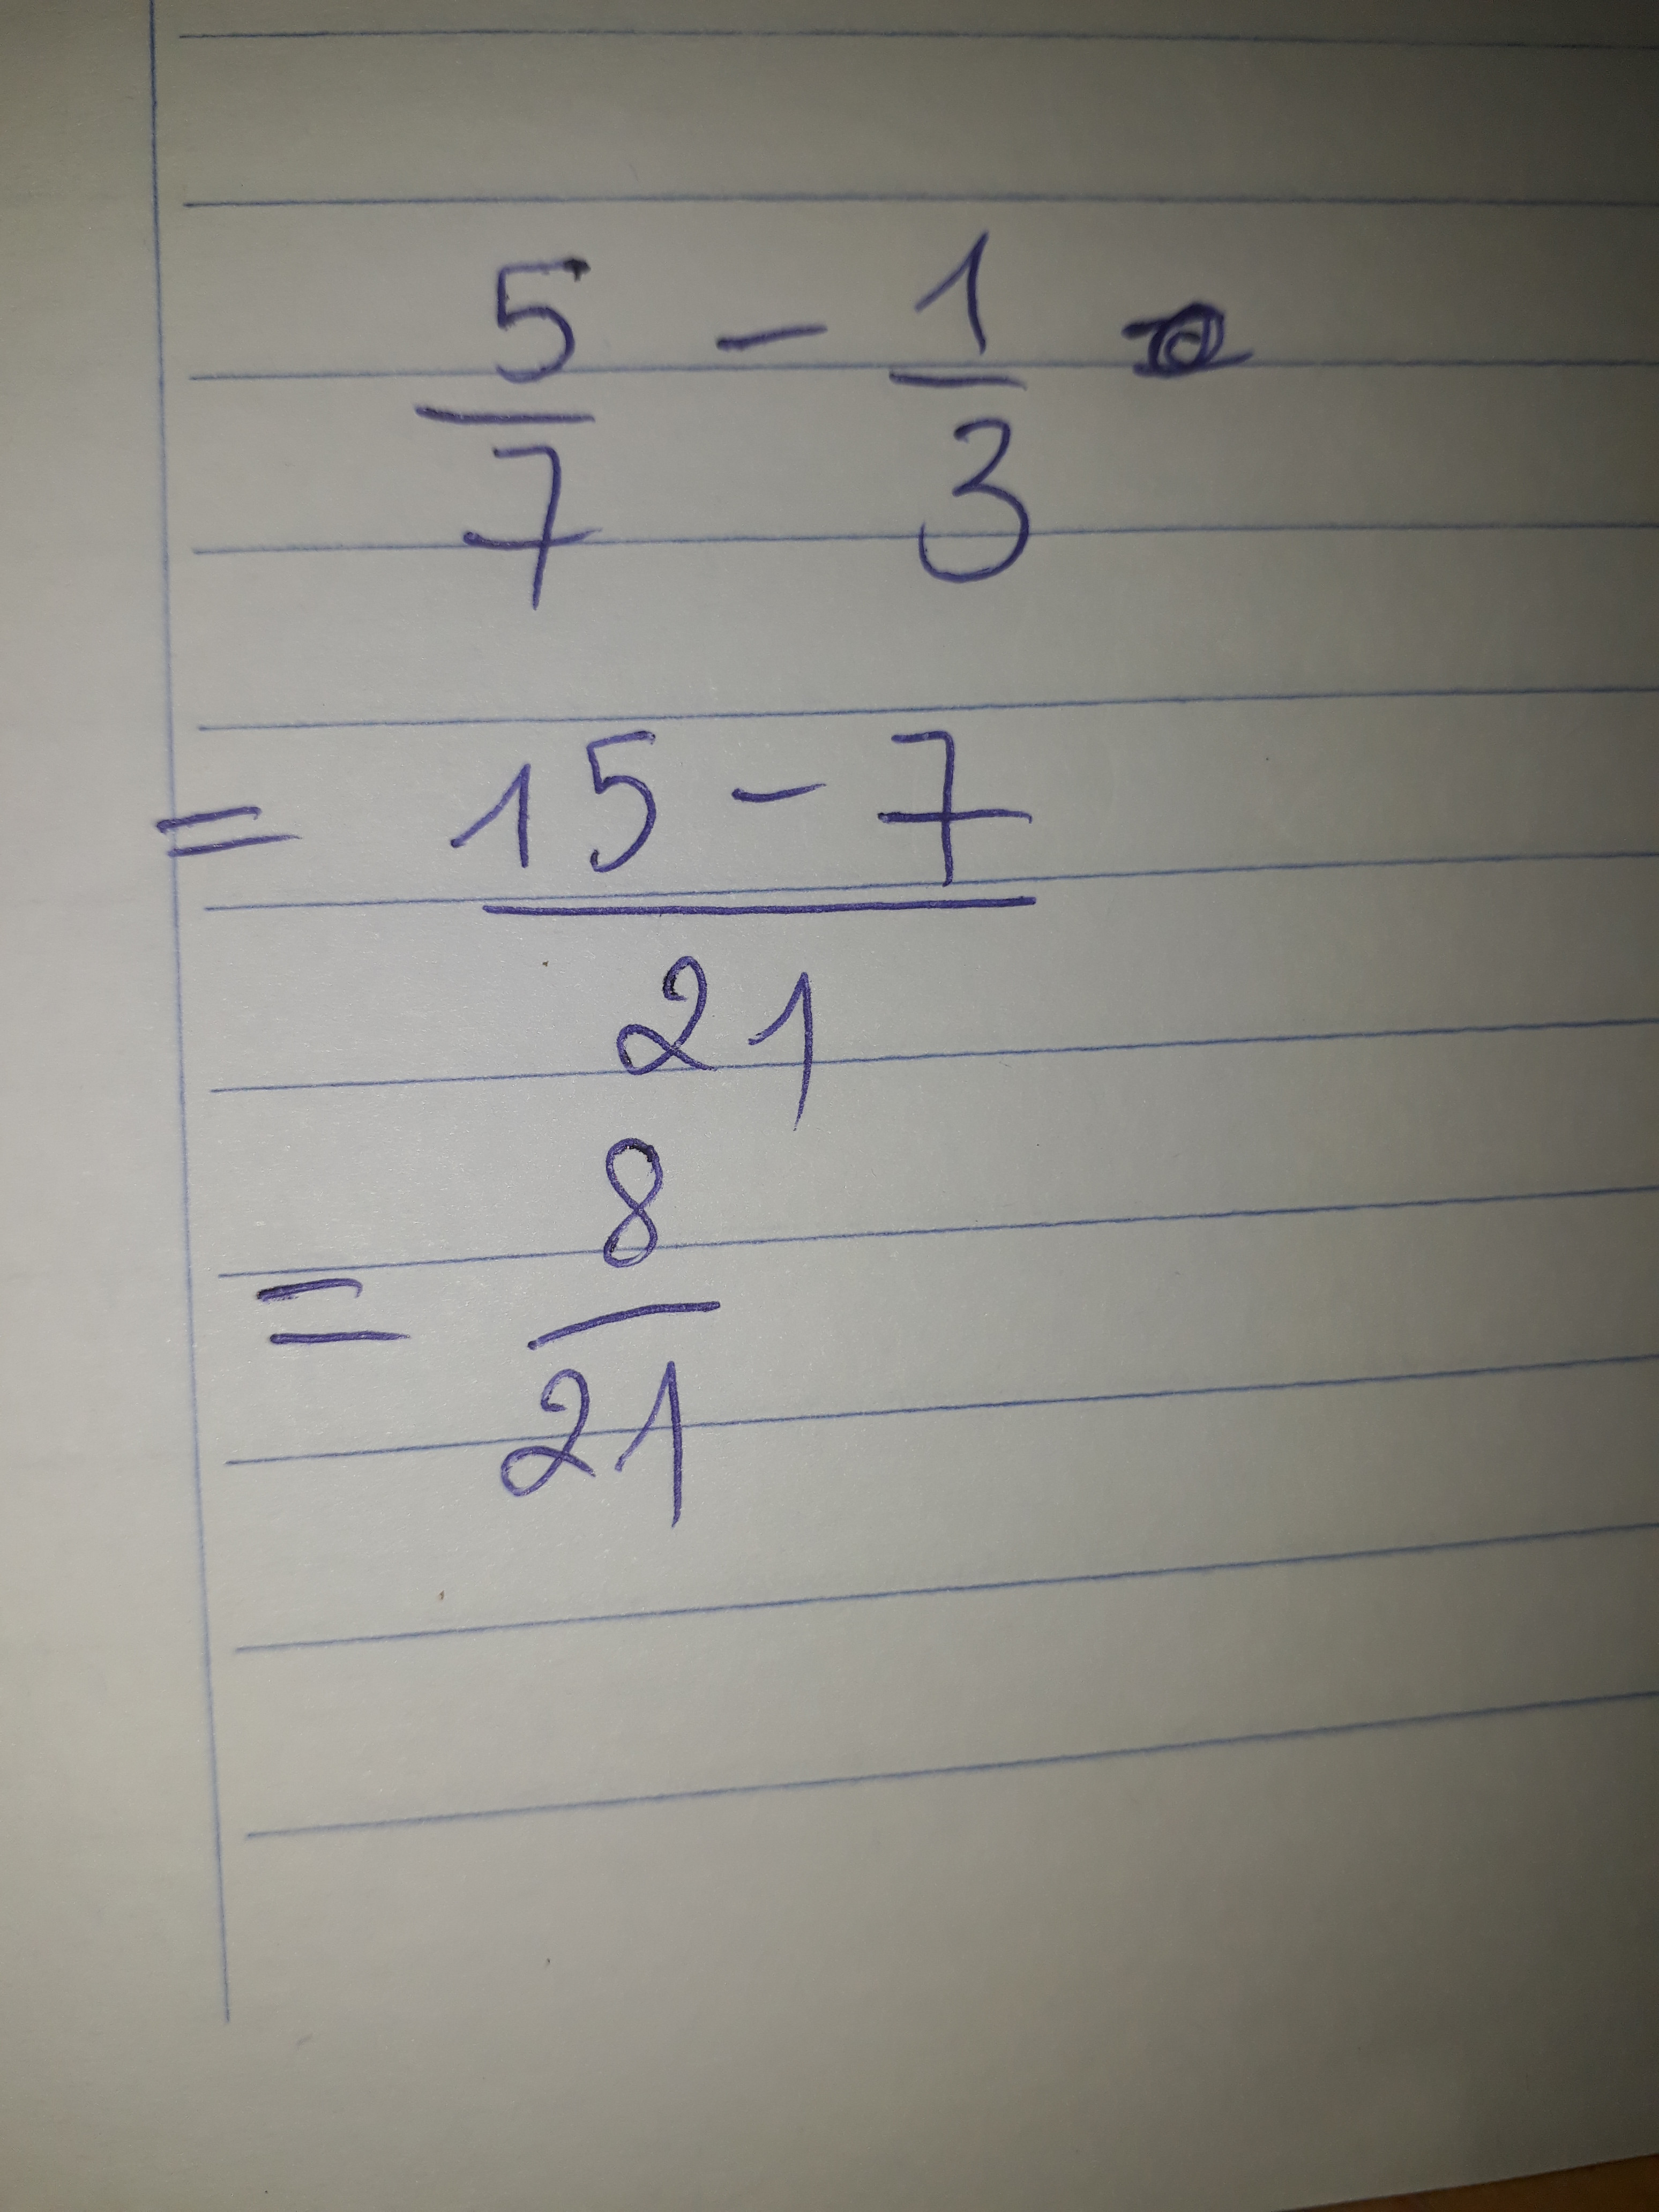 5/7 - 1/3
= 15 - 7 / 21
= 8/21